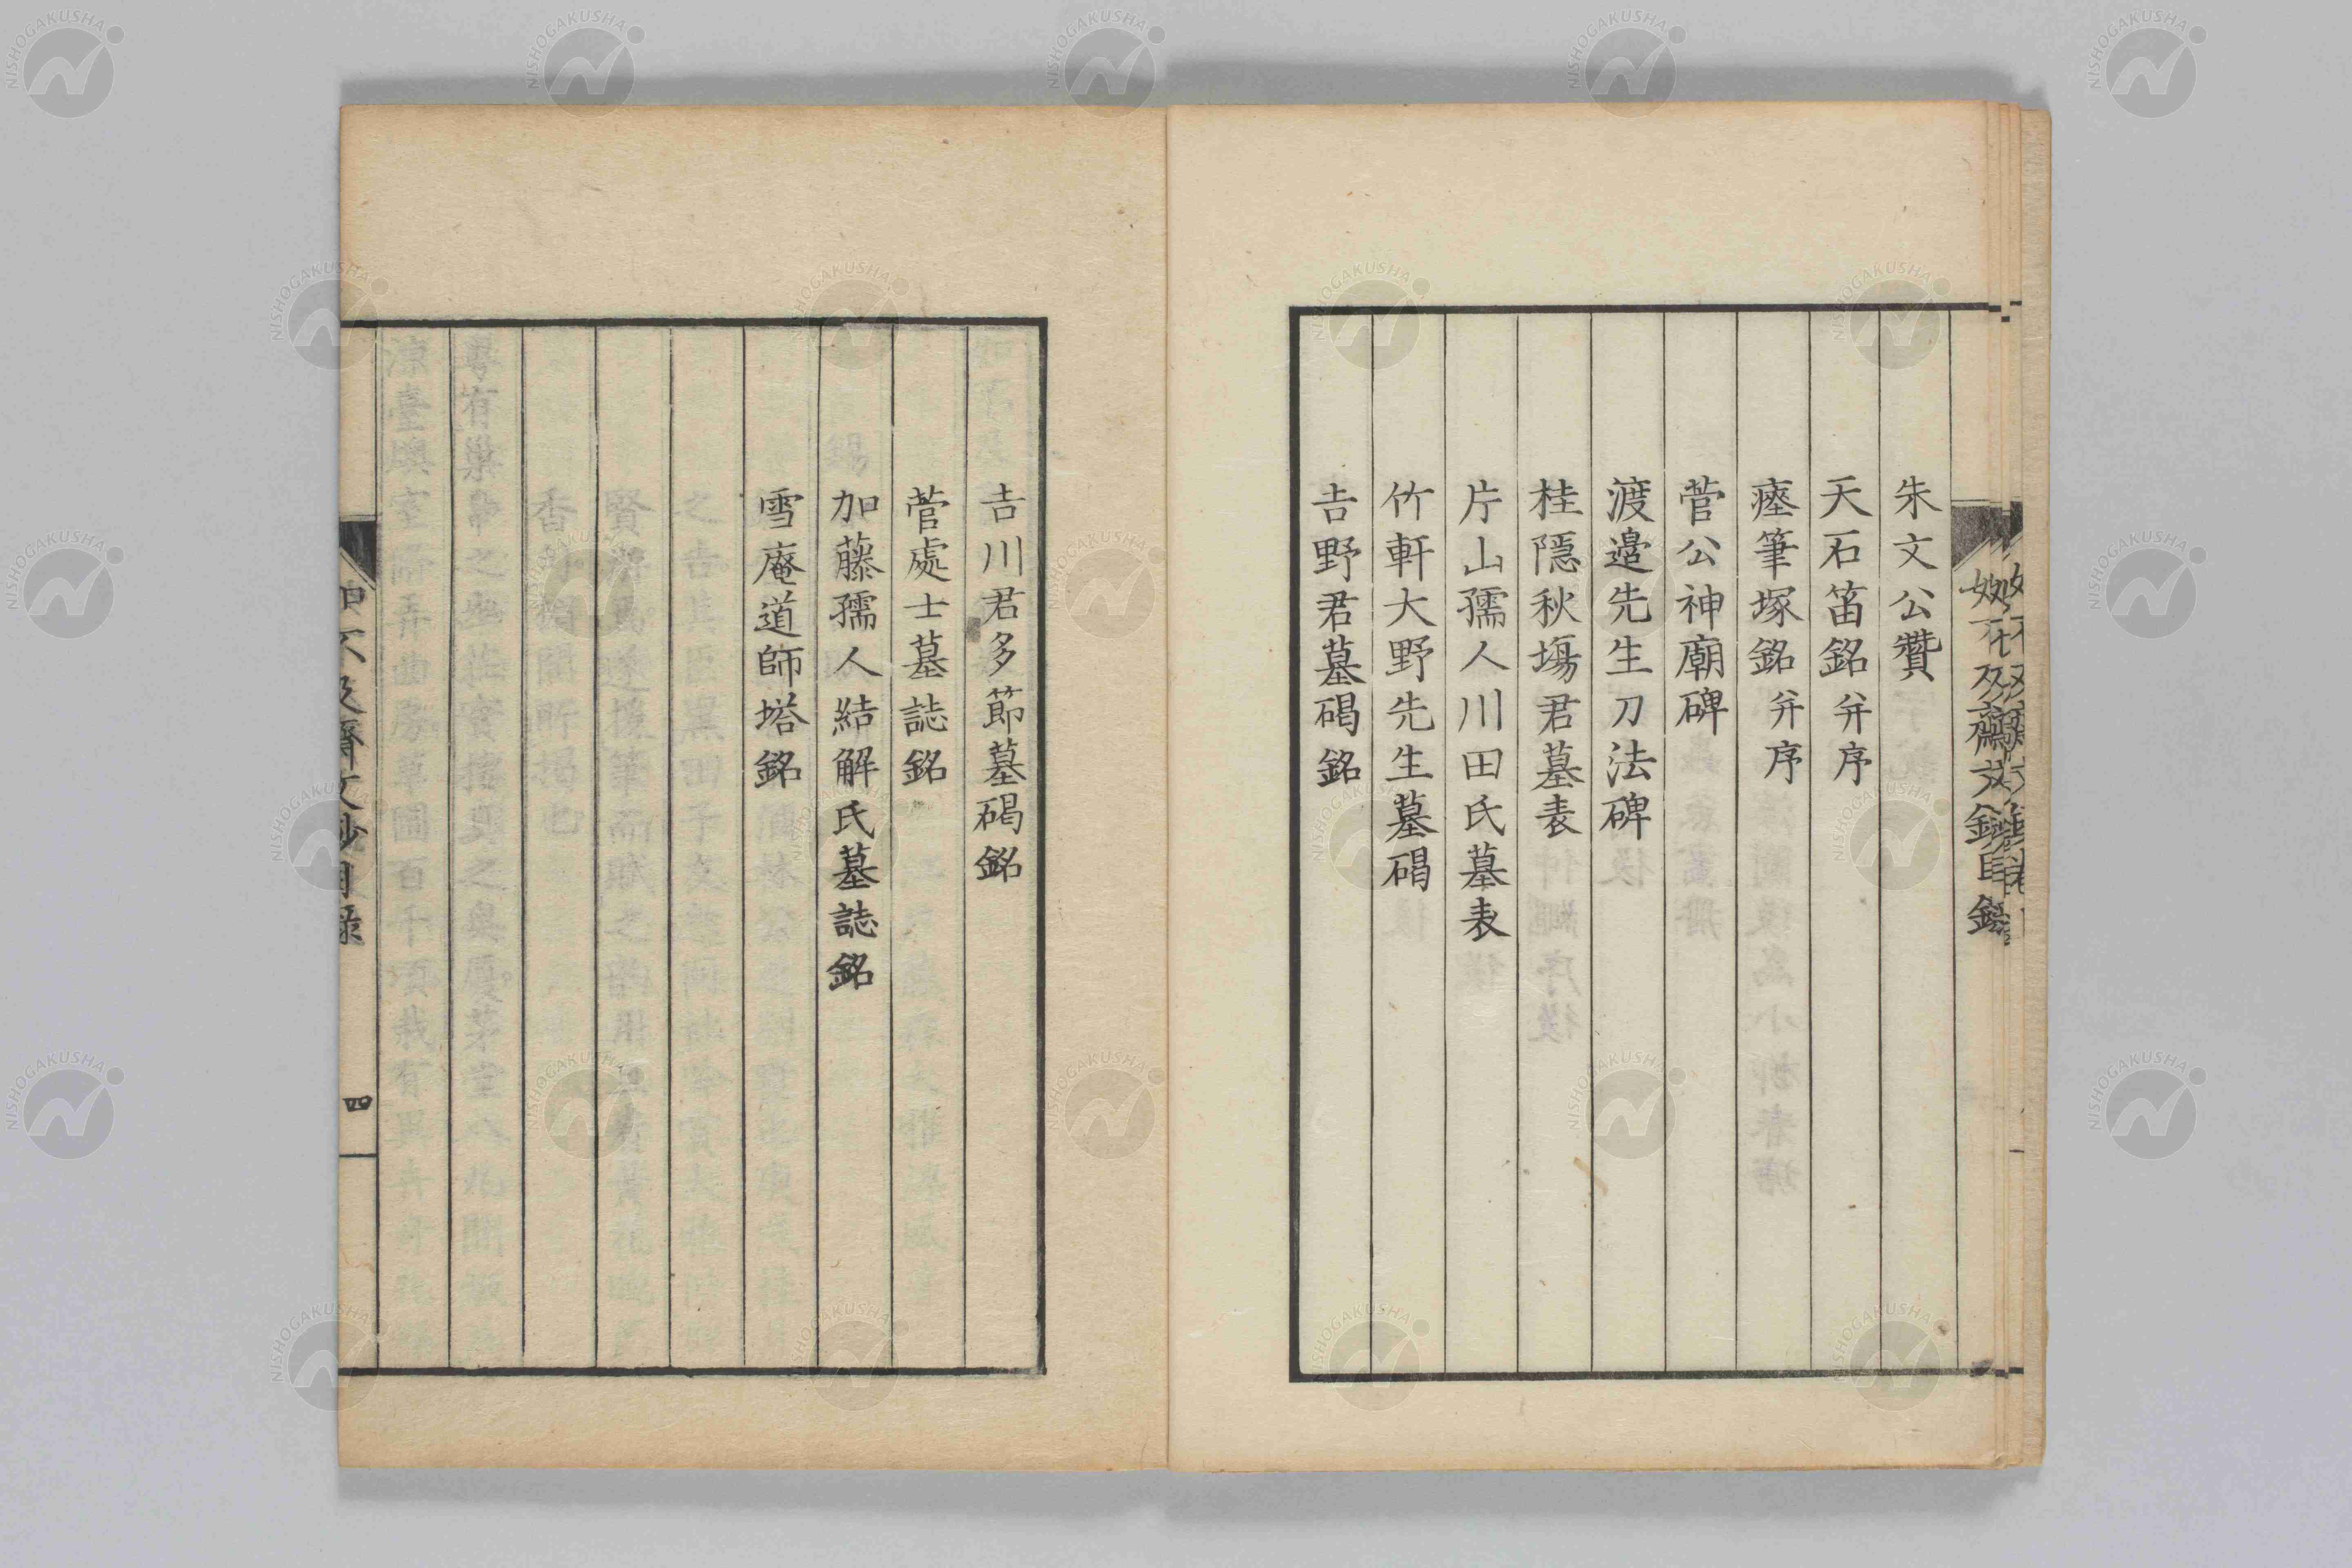 朱文公贊
天石笛銘并序
瘞筆塚銘并序
菅公神廟碑
渡邉先生刀法碑
桂隠秋塲君墓表
片山孺人川田氏墓表
竹軒大野先生墓碣
吉野君墓碣銘
吉川君多節墓碣銘
菅處士墓誌銘
加藤孺人結解氏墓誌銘
雪庵道師塔銘
四
NISHOGAKUSHA